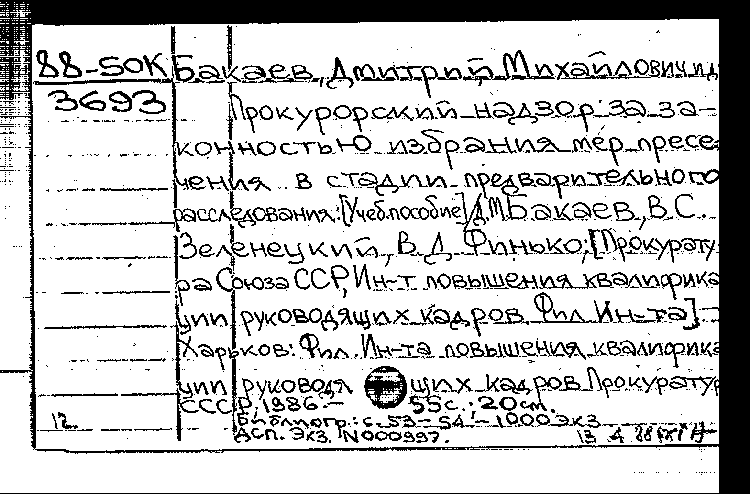 88-50К Бакаев, Дмитрий Михайлович и д
3693 Прокурорский надзор за за-
конностью избрания мер пресе
чения в стадии предварительного
расследования: [Учеб. пособие] Д.М. Бакаев, В.С.
Зеленецкий, В.Д. Финько; [Прокурату
ра Союза ССР, Ин-т повышения квалифика
ции руководящих кадров. Фил. Ин-та] -
Харьков: Фил. Ин-та повышения квалифика
ции руководящих кадров Прокуратур
СССР, 1986. - 55 с.; 20 см.
12. Библиогр.: с. 53-54. - 1000 экз.
Дсп. Экз. N000997. 13 4 88